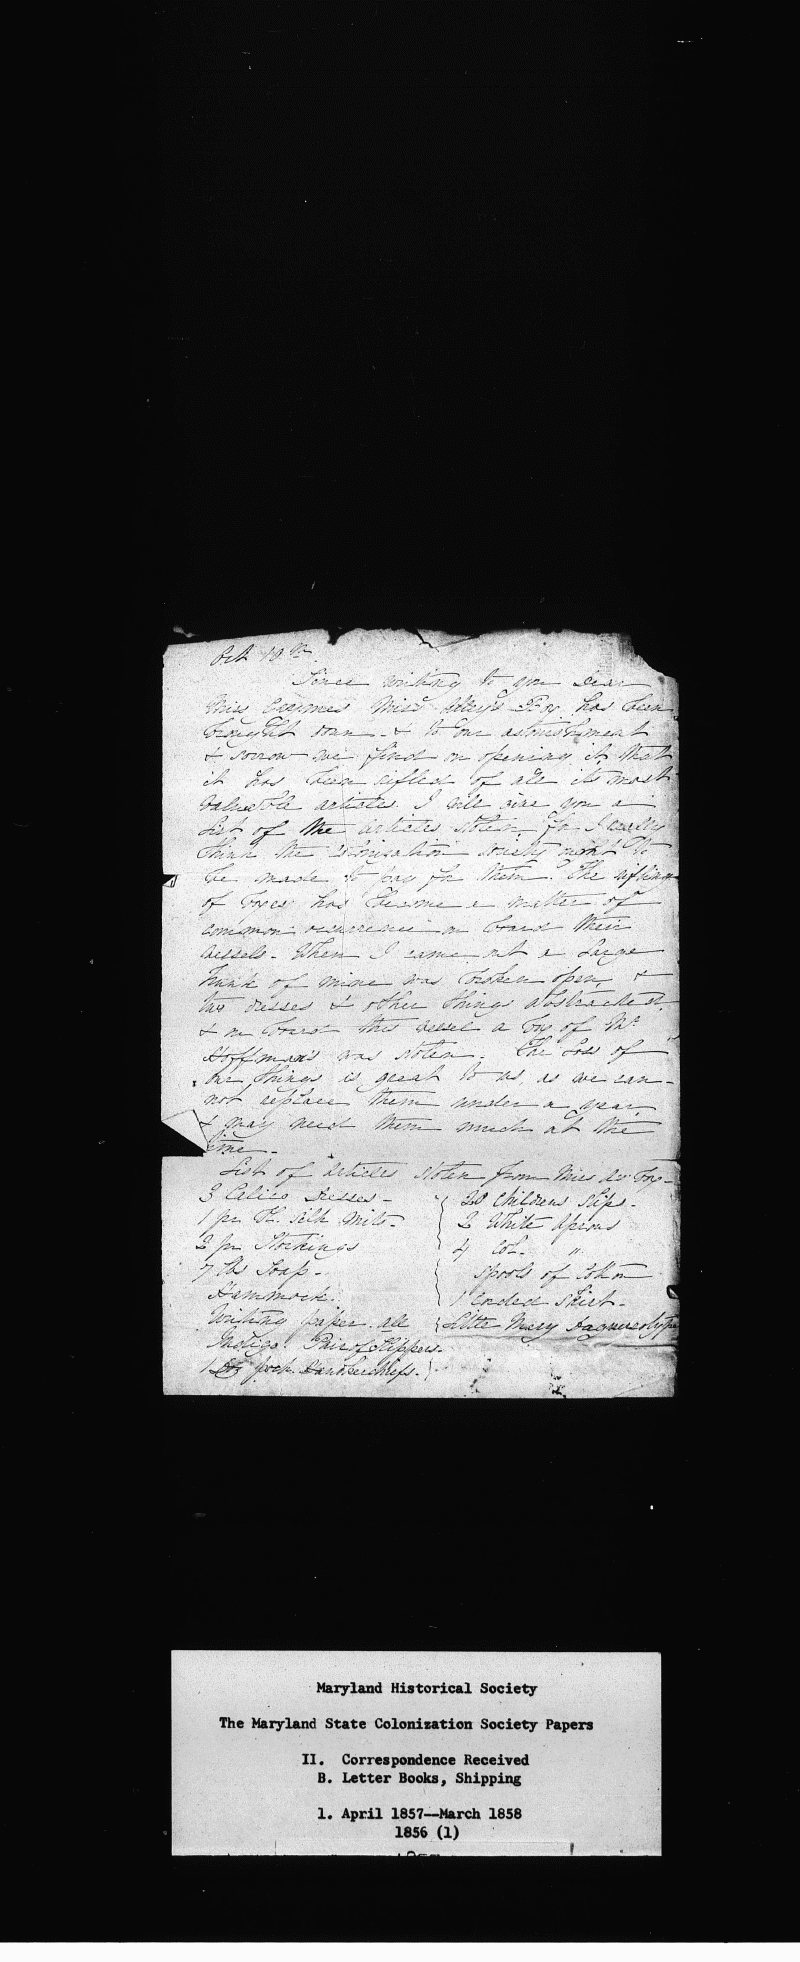 Oct 10th
Since writing to you dear
Miss Miss Box has been
brought down & to our astonishment
& sorrow we find on opening it that
it has been rifled of all its most
valuable articles. I will give you a
list of the articles stolen, for I really
think the colonization society ought to
be made to pay for them. The rifling
of boxes has become a matter of
common occurrence on board their
vessels. When I came out a large
trunk of mine was broken open, &
two dresses & other things abstracted,
& on board this vessel a box of Mr
Hoffman's was stolen. The loss of
our things is great to us, as we can-
not replace them under a year,
& may need them much at the
time.
List of articles stolen from Miss Box-
3 Calico Dresses -
1 pr silk mits -
2 pr Stockings
7 lbs Soap -
Hammock.
Writing paper all
Indigo. Pair of Slippers.
1 pock Handkerchiefs.
20 Childrens slips -
2 White Aprons
4 Col. "
Spools of Cotton
1 corded skirt -
Little Mary Daguerreotype
Maryland Historical Society
The Maryland State Colonization Society Papers
II. Correspondence Received
B. Letter Books, Shipping
1. April 1857--March 1858
1856 (1)